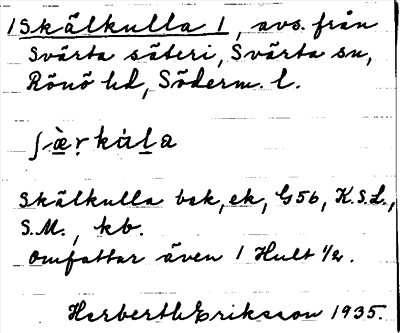 1 Skälkulla 1, avs. från
Svärta säteri, Svärta sn,
Rönö hd, Söderm. l.
ʃæ̀ṛkȧḷa
Skälkulla bsk, ek, G56, K.S.L.,
S.M., kb.
Omfattar även 1 Hult 1/2.
Herberth Eriksson 1935.